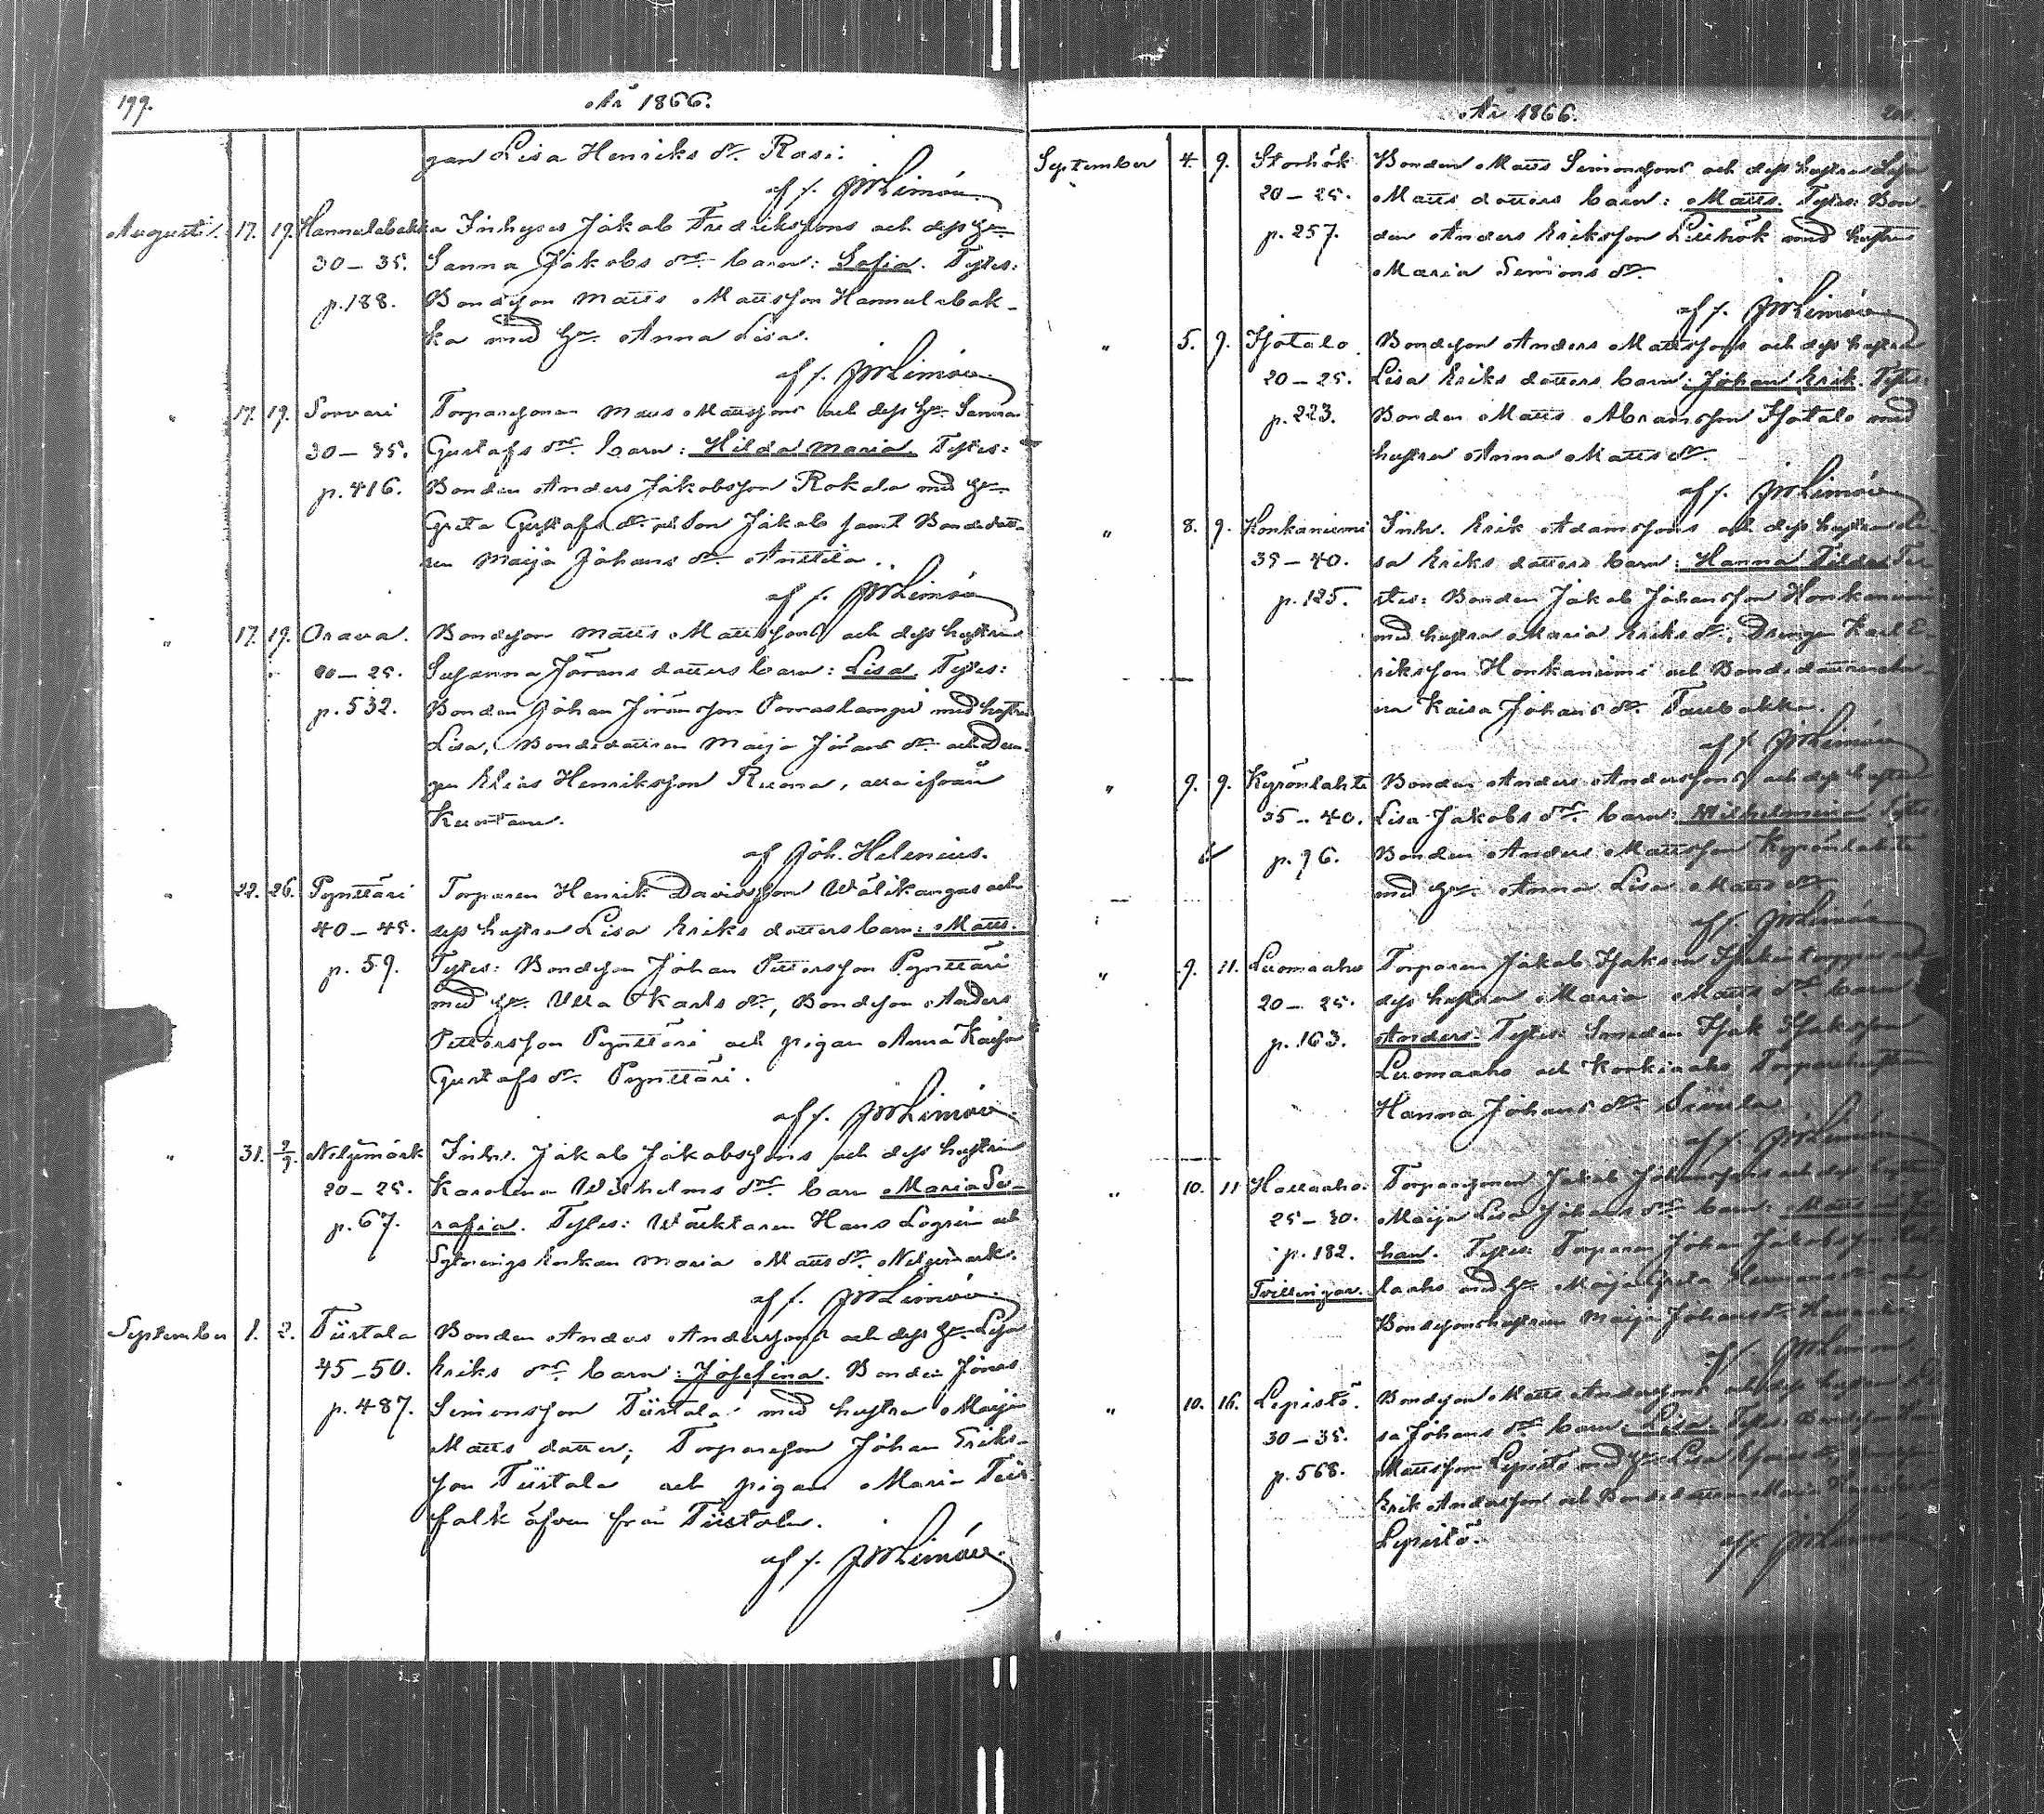 199.
År 1866.
gan Lisa Henriks dr. Rasi.
af f. JWLimón
Augusti 17. 19. Hannulabakka Inhyses Jakob Fredrikssons och dess Hu
30–35. Sanna Jakobs drs barn: Sofia. Testes:
p. 188. Bondeson Matts Mattsson Hannulabak-
ka med Hu. Anna Lisa.
af f. JWLimón
" 17. 19. Sorvari Torparesonen Matts Mattssons och dess Hu. Sanna
30–35. Gustafs drs barn: Hilda Maria. Testes:
p. 416. Bonden Anders Jakobsson Rokala med Hu
Greta Gustafs dr. och Son Jakob samt Bondedott-
ren Maija Johans dr. Anttila.
af f. JWLimón
" 17. 19. Orava. Bondeson Matts Mattssons och dess hustru
20–25. Susanna Jörans dotters barn: Lisa. Testes:
p. 532. Bonden Johan Jöransson Porraslampi med hustru
Lisa, Bondedottren Maija Jörans dr. och Drän-
gen Elias Henriksson Ruona, alla ifrån
Kuortane.
af Joh. Helenius.
" 22. 26. Pynttäri Torparen Henrik Davidsson Wälikangas och
40–45. dess hustru Lisa Eriks dotters barn: Matts.
p. 59. Testes: Bondeson Johan Pettersson Pynttäri
med Hu. Ulla Karls dr., Bondeson Anders
Pettersson Pynttäri och pigan Anna Kaisa
Gustafs dr. Pynttäri.
af f. JWLimón
" 31. 2/9. Neljimark Inhs. Jakob Jakobssons och dess hustru
20–25. Karolina Wilhelms drs barn Maria Se-
p. 67. rafia. Testes: Wäktaren Hans Logrén och
Sytnings Enkan Maria Matts dr. Neljimark.
af f. JWLimón
September 1. 2. Tiistala Bonden Anders Anderssons och dess Hu. Lisa
45–50. Eriks drs barn: Josefina. Bonden Jonas
p. 487. Simonsson Tiistala med hustru Maija
Matts dotter; Torpareson Johan Eriks-
son Tiistala och pigan Maria
falk äfven från Tiistala.
af f. JWLimón
År 1866.
200.
September 4. 9. Storhök Bonden Matts Simonssons och dess hustru Lisa
20–25. Matts dotters barn: Matts. Testes: Bon-
p. 257. den Anders Eriksson Lillhök med hustru
Maria Simons dr.
af f. JWLimón
" 5. 9. Isotalo Bondeson Anders Mattssons och dess hustru
20–25. Lisa Eriks dotters barn: Johan Erik. Testes:
p. 223. Bonden Matts Abramsson Isotalo med
hustru Anna Matts dr.
af f. JWLimón
" 8. 9. Honkaniemi Inh. Erik Adamssons och dess hustru Li-
35–40. sa Eriks dotters barn: Hanna Tilda. Te-
p. 125. stes: Bonden Jakob Johansson Honkaniemi
med hustru Maria Eriks dr., Drengen Karl E-
riksson Honkaniemi och Bondedottren
Kaisa Johans dr.
af f. JWLimón
" 9. 9. Kyrönlahti Bonden Anders Anderssons och dess hustru
35–40. Lisa Jakobs drs barn: Wilhelmiina. Testes:
p. 96. Bonden Anders Mattsson Kyrönlahti
med Hu. Anna Lisa Matts dr.
af f. JWLimón
" 9. 11. Luomaaho Torparen Jakob Isakson och
20–25. dess hustru Maria Matts drs barn
p. 163. Anders. Testes: Smeden Isak Isaksson
Luomaaho och Torparehustru
Hanna Johans dr.
af f. JWLimón
" 10. 11. Torparesonen Jakob Johanssons och dess hustru
25–30. Maija Lisa Johans drs barn: Matts
p. 182. han. Testes: Torparen Johan Jakobsson
Tvillingar. laaho med Hu. Maija Greta Hermans dr. och
Bondesonshustrun Maija Johans dr.
af f. JWLimón
" 10. 16. Lepistö. Bondeson Matts Anderssons och dess hustru Li-
30–35. sa Johans drs barn: Lisa. Testes: Bondeson
p. 568. Mattsson Lepistö med Hu. Lisa
Erik Andersson och Bondedottren Maria
Lepistö.
af f. JWLimón